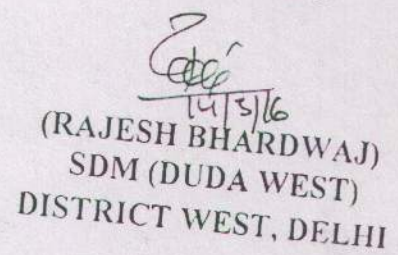 14/5/16
(RAJESH BHARDWAJ)
SDM (DUDA WEST)
DISTRICT WEST, DELHI